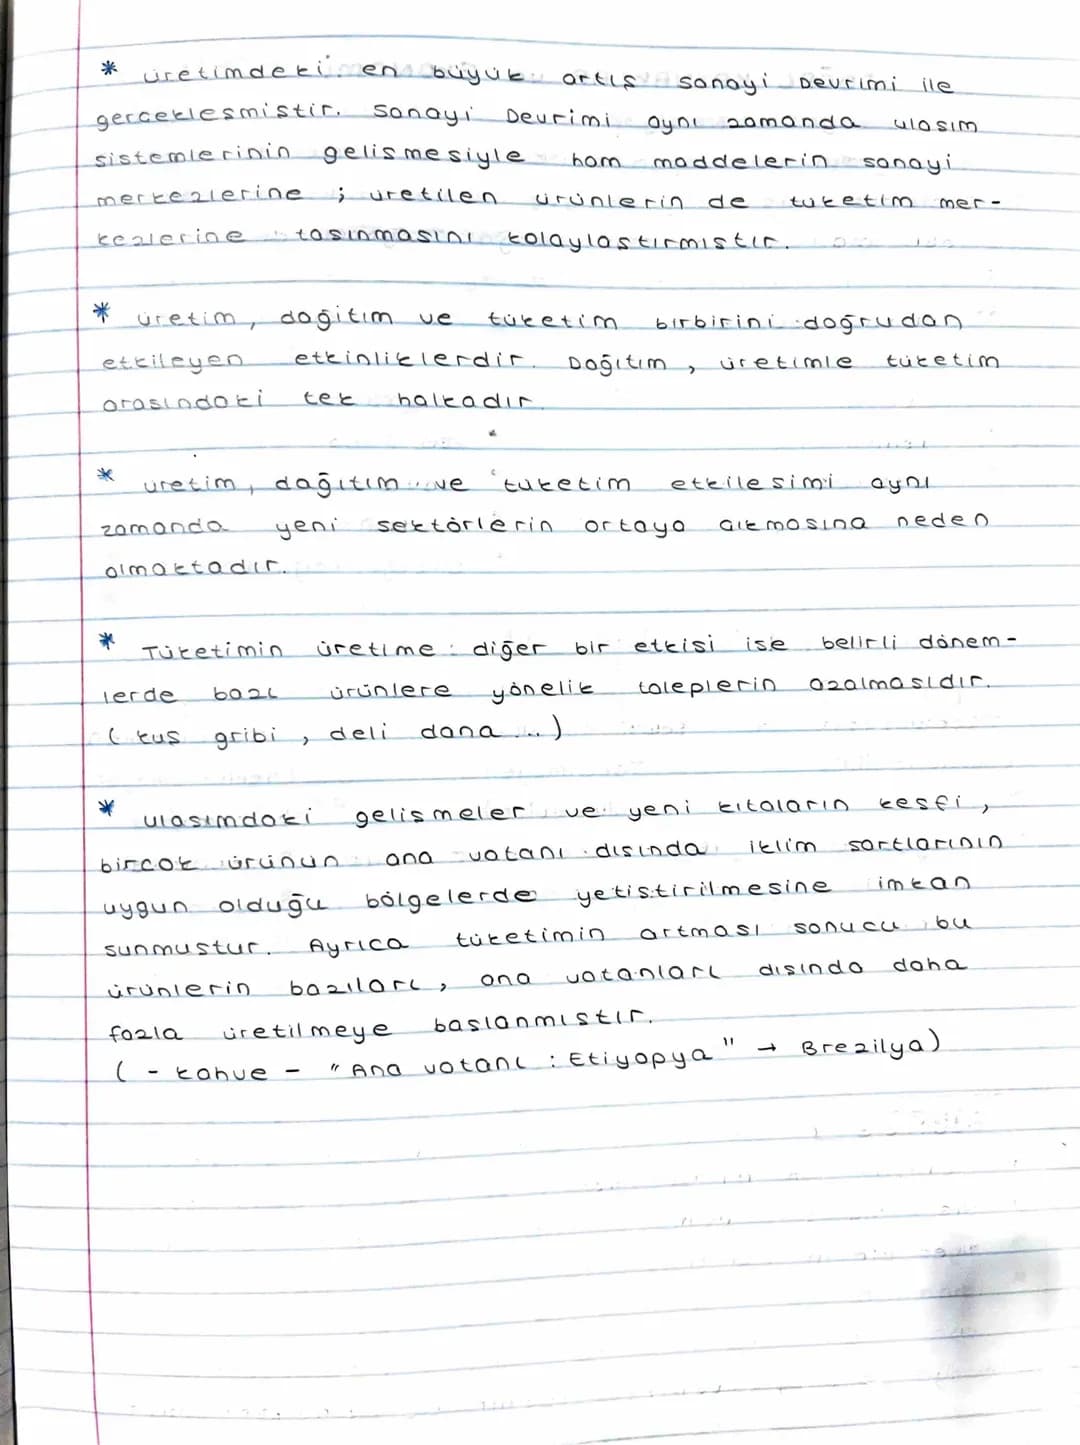 * üretimdeki en büyük artış sanayi Devrimi ile
gerceklesmistir. Sanayi Devrimi aynı zamanda ulasım
sistemlerinin gelismesiyle ham maddelerin sanayi
merkezlerine ; uretilen ürünlerin de tuketim mer-
kezlerine tasınmasını kolaylastırmıstır.
* üretim, dağıtım ve tüketim birbirini doğrudan
etkileyen etkinliklerdir. Dağıtım, üretimle tüketim
arasındaki tek halkadır.
* uretim, dağıtım ve tuketim etkilesimi aynı
zamanda yeni sektörlerin ortaya cıkmasına neden
olmaktadır.
* Tüketimin üretime diğer bir etkisi ise belirli dönem-
lerde bazı ürünlere yönelik taleplerin azalmasıdır.
( kus gribi , deli dana ... )
* ulasımdaki gelismeler ve yeni kıtaların kesfi,
bircok ürünün ana vatanı dısında iklim sartlarının
uygun olduğu bölgelerde yetistirilmesine imkan
sunmustur. Ayrıca tüketimin artması sonucu bu
ürünlerin bazıları, ana vatanları dısında daha
fazla üretilmeye baslanmıstır.
( - kahve - "Ana vatanı : Etiyopya" → Brezilya)